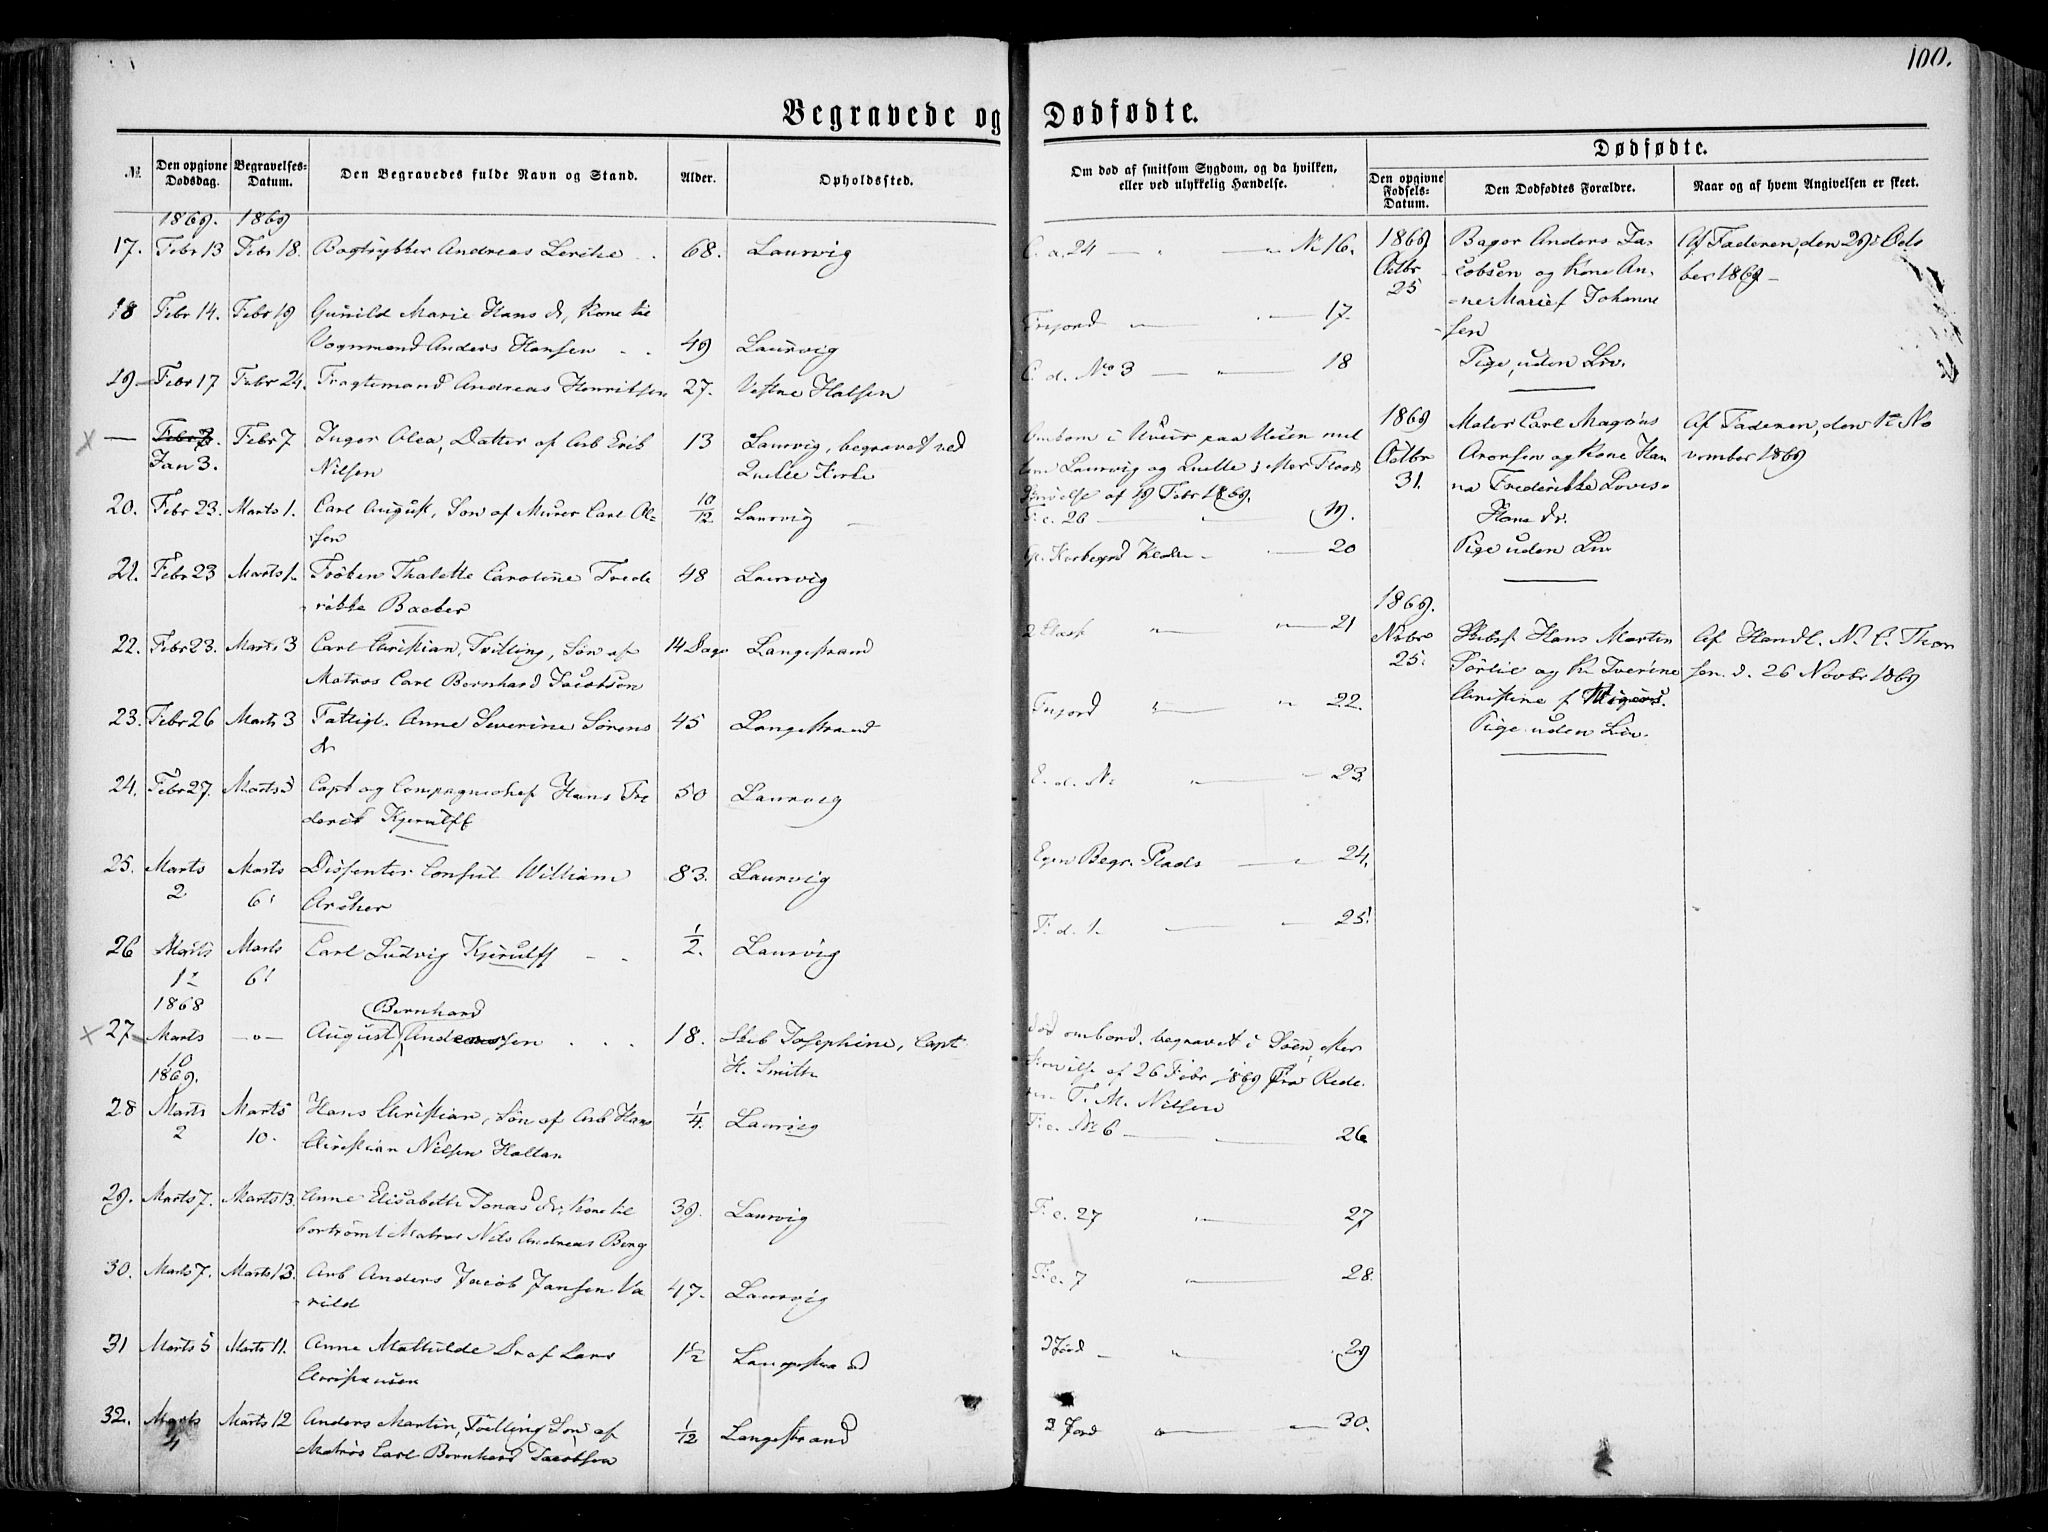 100.
Begravede og Dødfødte.
№ Den opgivne Dødsdag. Begravelses-Datum. Den Begravedes fulde Navn og Stand. Alder. Opholdssted.
1869. 1869
17. Febr 13 Febr 18. Bogtrykker Andreas Lerche 68. Laurvig
18 Febr 14. Febr 19 Gunild Marie Hans dr, Kone til
Vognmand Anders Hansen 49 Laurvig
19 Febr 17 Febr 24. Fragtemand Andreas Henriksen 27. Vestre Halsen
— Febr 7. Febr 7 Inger Olea, Datter af Arb Erik 13 Laurvig, begravet ved
Jan 3. Nilsen Kirke
20. Febr 23. Marts 1. Carl August, Søn af Murer Carl Ol- 10/12 Laurvig
sen
21. Febr 23 Marts 1. Frøken Thalette Caroline Frede 48 Laurvig
rikke Backer
22. Febr 23. Marts 3 Carl Christian, Tvilling, Søn af 14 Dage Langestrand
Matros Carl Bernhard Jacobsen
23. Febr 26 Marts 3 Fattigl. Anne Severine Sørens 45 Langestrand
dr
24. Febr 27. Marts 5 Capt og Compagniechef Hans Fre 50 Laurvig
derik Kjerulff
25. Marts Marts Dissenter Consul William 83. Laurvig
2 6. Archer
26 Marts Marts Carl Ludvig Kjerulff 1/2. Laurvig
1 6.
1868 Bernhard
27 Marts -o- August Andersen 18. Skib Josephine, Capt
10 H. Smith
1869.
28 Marts Marts Hans Christian, Søn af Arb Hans 1/4. Laurvig
2 10. Christian Nilsen Hallan
29. Marts 7. Marts 13. Anne Elisabeth Jonas dr, Kone til 39. Laurvig
bortrømt Matros Nils Andreas Berg
30. Marts 7. Marts 13. Arb Anders Jacob Jansen Va 47. Laurvig
rild
31 Marts 5 Marts 11. Anne Mathilde Dr af Lars 1 1/2 Langestrand
Christensen
32. Marts Marts 12 Anders Martin, Tvilling Søn af 1/12 Langestrand
4 Matros Carl Bernhard Jacobsen
Om død af smitsom Sygdom, og da hvilken,
eller ved ulykkelig Hændelse.
C. a. 24 № 16.
17.
C. d. No 3 18
Ombom i Uveir paa Veien mel
lem Laurvig og
af 19 Febr 1869.
F. c. 26 19.
20
21
22.
E. d. № 23.
Egen Begr. Plads 24.
F. d. 1. 25.
død ombord, begravet i Søen, efter
Skrivelse af 26 Febr 1869 fra Rede
ren T. M. Nilsen
F. c. № 6 26
F. c. 27 27
F. c. 7 28.
3 Jord 29
3 Jord 30.
Dødfødte.
Den opgivne Fødsels-Datum. Den Dødfødtes Forældre. Naar og af hvem Angivelsen er skeet.
1869 Bager Anders Ja- Af Faderen, den 29. Octo
Octbr cobsen og Kone An- ber 1869
25 ne Marie f Johanne
sen
Pige, uden Liv.
1869 Maler Carl Magnus Af Faderen, den 1. No
Octbr Aronsen og Kone Han vember 1869
31. na Frederikke Lovise
Hans dr.
Pige uden Liv
1869.
Novbr Hans Martin Af Handl. N. C. Thor
25. og K. Iverine sen. d. 26 Novbr 1869
Christine f
Pige uden Liv.